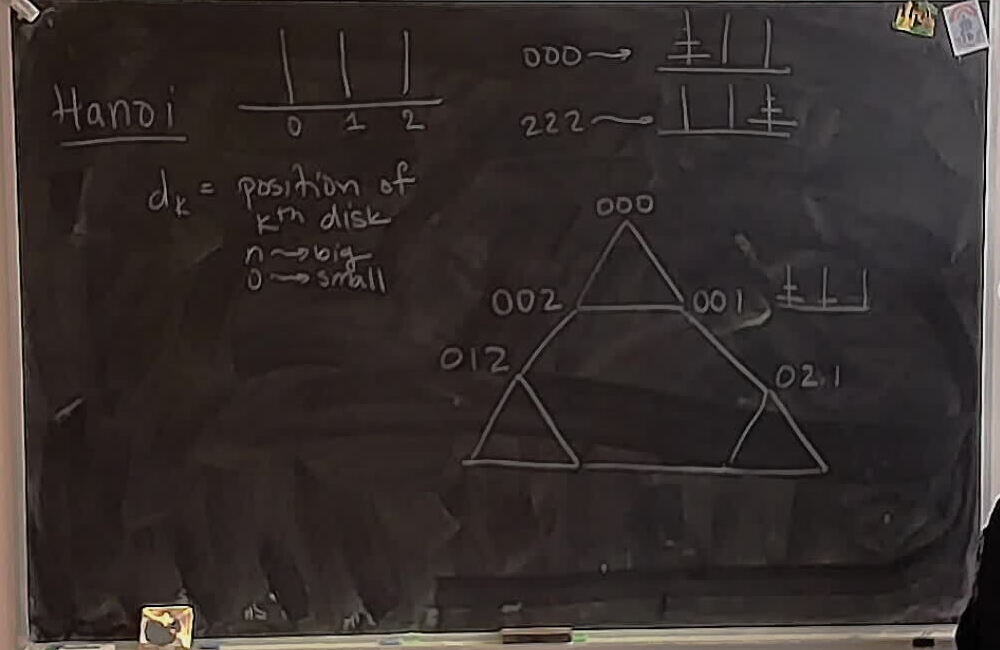 Hanoi
0 1 2
000→
222→
d_k = position of
k^th disk
n→big
0→small
000
002
001
012
02.1